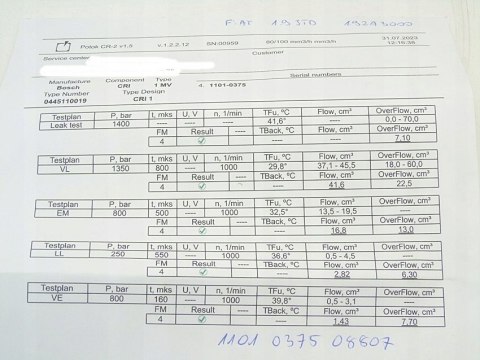 FIAT 1.9JTD 192A3000
Potok CR-2 v1.5 v.1.2.2.12 SN:00959 80/100 mm3/h mm3/h 31.07.2023 12:16:38
Service center Customer
Serial numbers
Manufacture Component Type
Bosch CRI 1 MV 4. 1101-0375
Type Number Type Design
0445110019 CRI 1
Testplan P, bar t, mks U, V n, 1/min TFu, ºC Flow, cm³ OverFlow, cm³
Leak test 1400 ---- ---- ---- 41,6° ---- 0,0 - 70,0
FM Result ---- TBack, ºC Flow, cm³ OverFlow, cm³
4 ---- ---- 7,10
Testplan P, bar t, mks U, V n, 1/min TFu, ºC Flow, cm³ OverFlow, cm³
VL 1350 800 ---- 1000 29,8° 37,1 - 45,5 18,0 - 60,0
FM Result ---- TBack, ºC Flow, cm³ OverFlow, cm³
4 ---- 41,6 22,5
Testplan P, bar t, mks U, V n, 1/min TFu, ºC Flow, cm³ OverFlow, cm³
EM 800 500 ---- 1000 32,5° 13,5 - 19,5 ----
FM Result ---- TBack, ºC Flow, cm³ OverFlow, cm³
4 ---- 16,8 13,0
Testplan P, bar t, mks U, V n, 1/min TFu, ºC Flow, cm³ OverFlow, cm³
LL 250 550 ---- 1000 36,6° 0,5 - 4,5 ----
FM Result ---- TBack, ºC Flow, cm³ OverFlow, cm³
4 ---- 2,82 6,30
Testplan P, bar t, mks U, V n, 1/min TFu, ºC Flow, cm³ OverFlow, cm³
VE 800 160 ---- 1000 39,8° 0,5 - 3,1 ----
FM Result ---- TBack, ºC Flow, cm³ OverFlow, cm³
4 ---- 1,43 7,70
1101 0375 08807